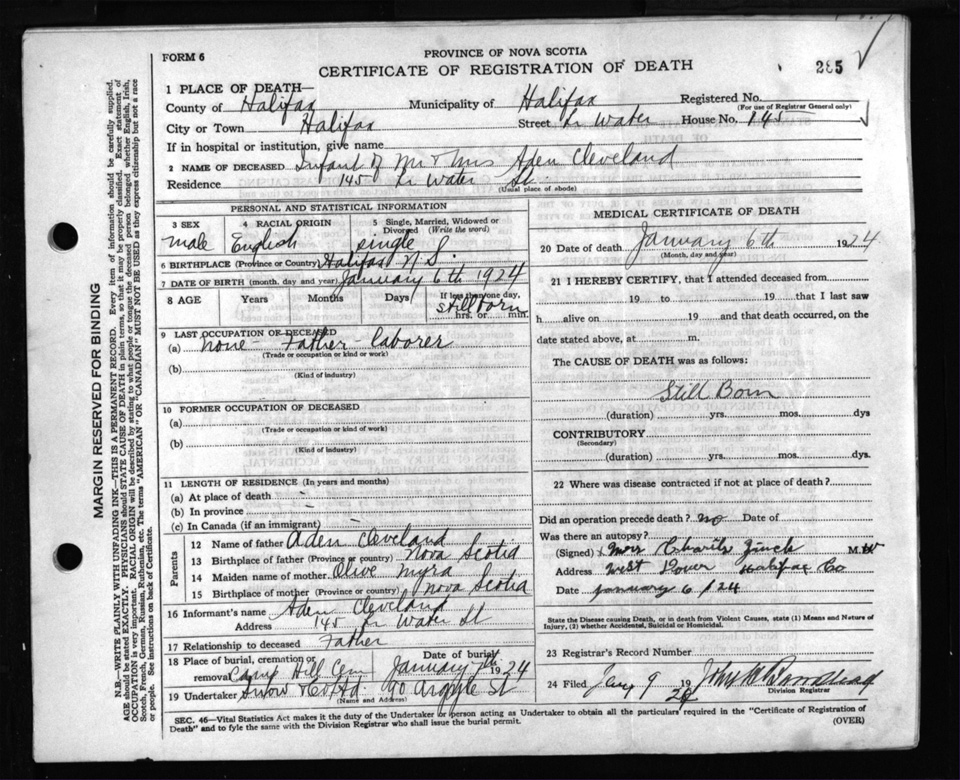 FORM 6
PROVINCE OF NOVA SCOTIA
CERTIFICATE OF REGISTRATION OF DEATH
285
1 PLACE OF DEATH—
County of Halifax Municipality of Halifax Registered No.
(For use of Registrar General only)
City or Town Halifax Street Lr Water House No. 145
If in hospital or institution, give name
2 NAME OF DECEASED Infant of Mr & Mrs Aden Cleveland
Residence 145 Lr Water St.
(Usual place of abode)
PERSONAL AND STATISTICAL INFORMATION
3 SEX 4 RACIAL ORIGIN 5 Single, Married, Widowed or Divorced (Write the word)
Male English Single
6 BIRTHPLACE (Province or Country) Halifax N.S.
7 DATE OF BIRTH (month, day and year) January 6th 1924
8 AGE Years Months Days If less than one day, hrs. or min.
Stillborn
9 LAST OCCUPATION OF DECEASED
(a) None - Father - laborer
(Trade or occupation or kind or work)
(b)
(Kind of industry)
10 FORMER OCCUPATION OF DECEASED
(a)
(Trade or occupation or kind of work)
(b)
(Kind of industry)
11 LENGTH OF RESIDENCE (In years and months)
(a) At place of death
(b) In province
(c) In Canada (if an immigrant)
Parents
12 Name of father Aden Cleveland
13 Birthplace of father (Province or country) Nova Scotia
14 Maiden name of mother Olive Myra
15 Birthplace of mother (Province or country) Nova Scotia
16 Informant's name Aden Cleveland
Address 145 Lr Water St
17 Relationship to deceased Father
18 Place of burial, cremation or removal Camp Hill Cem Date of burial January 7th 1924
19 Undertaker Snow & Co Ltd. 90 Argyle St
(Name and Address)
MEDICAL CERTIFICATE OF DEATH
20 Date of death January 6th 1924
(Month, day and year)
21 I HEREBY CERTIFY, that I attended deceased from
19 to 19 that I last saw
h alive on 19 and that death occurred, on the
date stated above, at m.
The CAUSE OF DEATH was as follows:
Still Born
(duration) yrs. mos. dys
CONTRIBUTORY
(Secondary)
(duration) yrs. mos. dys.
22 Where was disease contracted if not at place of death?
Did an operation precede death? no Date of
Was there an autopsy?
(Signed) Mrs Charity Zinck M.W
Address West Dover Halifax Co
Date January 6/24
State the Disease causing Death, or in death from Violent Causes, state (1) Means and Nature of
Injury, (2) whether Accidental, Suicidal or Homicidal.
23 Registrar's Record Number
24 Filed Jany 9 1924 John
Division Registrar
SEC. 46—Vital Statistics Act makes it the duty of the Undertaker or person acting as Undertaker to obtain all the particulars required in the "Certificate of Registration of
Death" and to fyle the same with the Division Registrar who shall issue the burial permit.
(OVER)
MARGIN RESERVED FOR BINDING
N.B.—WRITE PLAINLY WITH UNFADING INK—THIS IS A PERMANENT RECORD. Every item of information should be carefully supplied.
AGE should be stated EXACTLY. PHYSICIANS should STATE CAUSE OF DEATH in plain terms, so that it may be properly classified. Exact statement of
OCCUPATION is very important. RACIAL ORIGIN will be described by stating to what people or tongue the deceased person belonged, whether English, Irish,
Scotch, French, German, Russian, Ruthenian, etc. The terms "AMERICAN" OR "CANADIAN" MUST NOT BE USED as they express citizenship but not a race
or people. See instructions on back of Certificate.